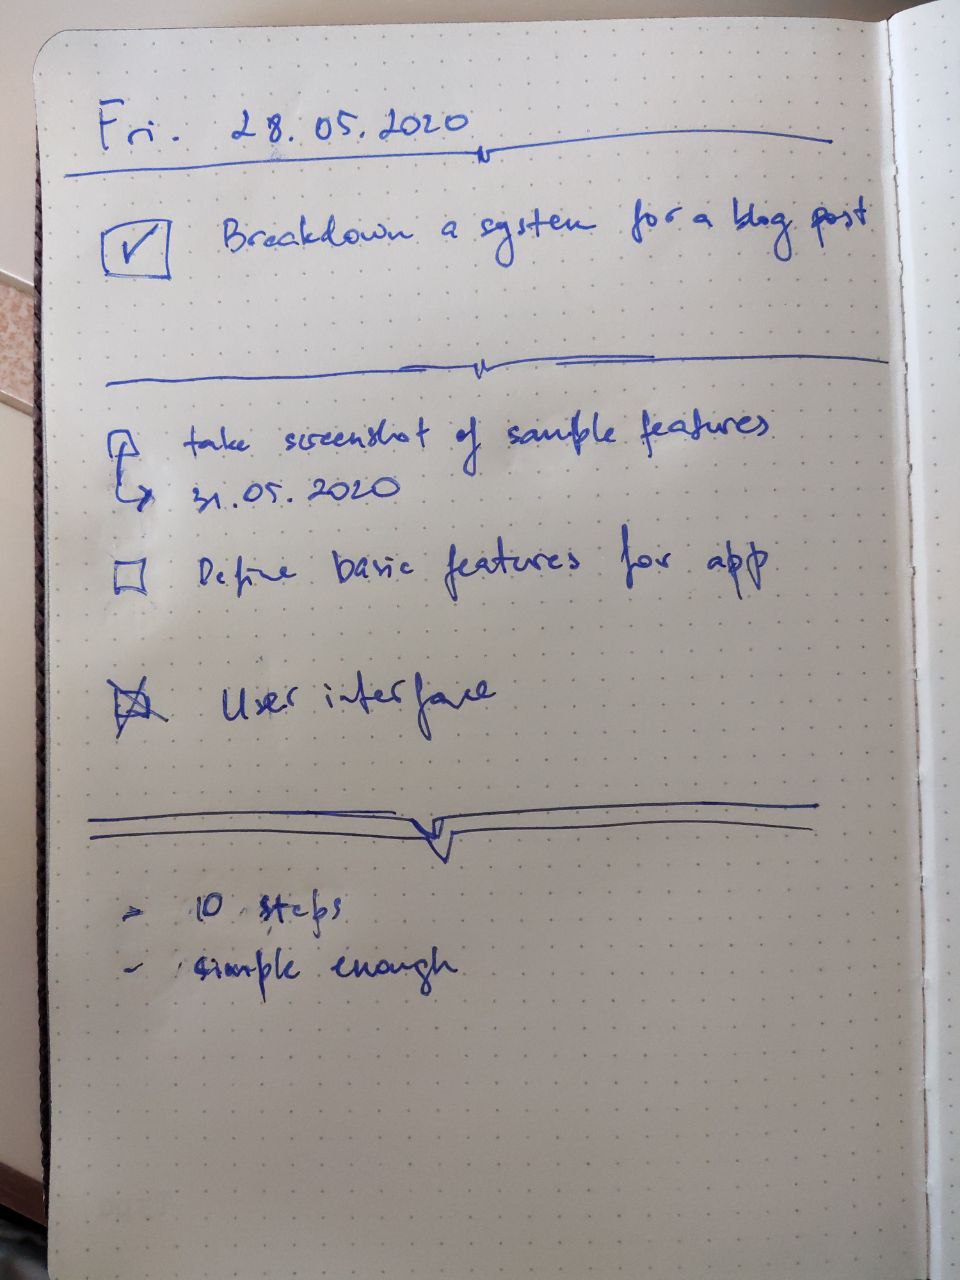 Fri. 28.05.2020
Breakdown a system for a blog post
take screenshot of sample features
31.05.2020
Define basic features for app
User interface
10 steps
simple enough